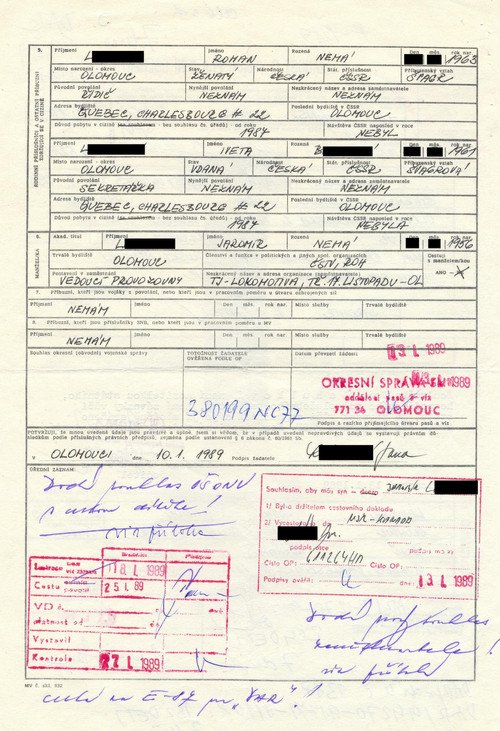 5. Příjmení Jméno Rozená Den měs. rok nar.
L ROMAN NEMÁ 1963
Místo narození - okres Stav Národnost Stát. příslušnost Příbuzenský vztah
OLOMOUC ŽENATÝ ČESKÁ ČSSR ŠVAGR
Původní povolání Nynější povolání Neskrácený název a adresa zaměstnavatele
ŘIDIČ NEZNÁM NEZNÁM
Adresa bydliště Poslední bydliště v ČSSR
QUEBEC, CHARLESBOURG # 22 OLOMOUC
Důvod pobytu v cizině bez souhlasu čs. úřadů - od roku Návštěva ČSSR naposled v roce
1987 NEBYL
Příjmení Jméno Rozená Den měs. rok nar.
L IVETA B 1961
Místo narození - okres Stav Národnost Stát. příslušnost Příbuzenský vztah
OLOMOUC VDANÁ ČESKÁ ČSSR ŠVAGROVÁ
Původní povolání Nynější povolání Neskrácený název a adresa zaměstnavatele
SEKRETÁŘKA NEZNÁM NEZNÁM
Adresa bydliště Poslední bydliště v ČSSR
QUEBEC, CHARLESBOURG # 22 OLOMOUC
Důvod pobytu v cizině bez souhlasu čs. úřadů - od roku Návštěva ČSSR naposled v roce
1987 NEBYLA
RODINNÍ PŘÍSLUŠNÍCI A OSTATNÍ PŘÍBUZNÍ ZDRŽUJÍ SE V CIZINĚ
6. Akad. titul Příjmení Jméno Rozená Den měs. rok nar.
L JAROMÍR NEMÁ 1956
Trvalé bydliště Členství a funkce v politických a jiných spol. organizacích Cestuji s manželem/kou
OLOMOUC ČSTV, ROH ANO
MANŽEL/KA
Postavení v zaměstnání Neskrácený název a adresa organizace
VEDOUCÍ PROVOZOVNY TJ-LOKOMOTIVA, TŘ. 17. LISTOPADU-OL
7. Příbuzní, kteří jsou vojáky z povolání, nebo kteří jsou v pracovním poměru u útvaru ozbrojených sil
Příjmení Jméno Den měs. rok nar. Místo služby Trvalé bydliště
NEMÁM
8. Příbuzní, kteří jsou příslušníky SNB, nebo kteří jsou v pracovním poměru u MV
Příjmení Jméno Den měs. rok nar. Místo služby Trvalé bydliště
NEMÁM
Souhlas okresní (obvodní) vojenské správy
TOTOŽNOST ŽADATELE OVĚŘENA PODLE OP
Datum převzetí žádosti
13 I. 1989
380199 NC77
OKRESNÍ SPRÁVA SNB
oddělení pasů a víz
771 36 OLOMOUC
Podpis a razítko přijímajícího útvaru pasů a víz
POTVRZUJI, že mnou uvedené údaje jsou pravdivé a úplné. Jsem si vědom, že v případě uvedení nepravdivých údajů se vystavuji právním důsledkům podle příslušných právních předpisů, zejména podle ustanovení § 6 zákona č. 60/1961 Sb.
v OLOMOUCI dne 10. 1. 1989 Podpis žadatele
ÚŘEDNÍ ZÁZNAM:
Dodá souhlas
via příloha
Souhlasím, aby můj syn - dcera Jaromír L
1/ Byl-a držitelem cestovního dokladu
2/ Vycestoval-a do
podpis otce podpis matky
Číslo OP: Číslo OP:
Podpisy ověřil: 13 I. 1989
Lustrace 18 I. 1989
Cestu povolil 25 I. 89
VD č.
platnost od do
Vystavil
Kontrola 27 I. 1989
Dodá souhlas
via příloha